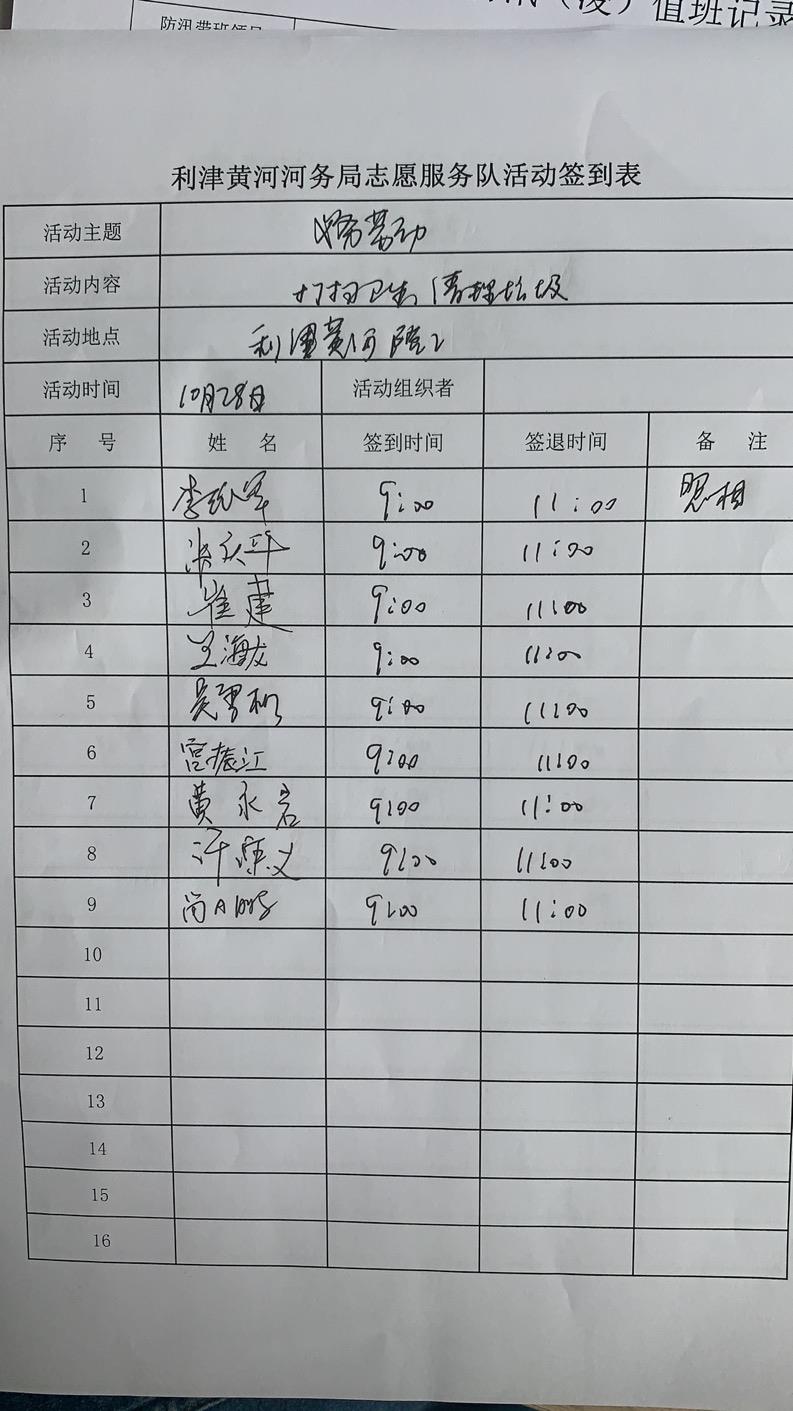 值班记录
防汛带班领导
利津黄河河务局志愿服务队活动签到表
活动主题 义务劳动
活动内容 打扫卫生 清理垃圾
活动地点 利津黄河
活动时间 10月28日 活动组织者
序 号 姓 名 签到时间 签退时间 备 注
1 9:00 11:00 照相
2 9:00 11:00
3 崔建 9:00 11:00
4 王海龙 9:00 11:00
5 9:00 11:00
6 宫振江 9:00 11:00
7 黄永岩 9:00 11:00
8 9:00 11:00
9 9:00 11:00
10
11
12
13
14
15
16